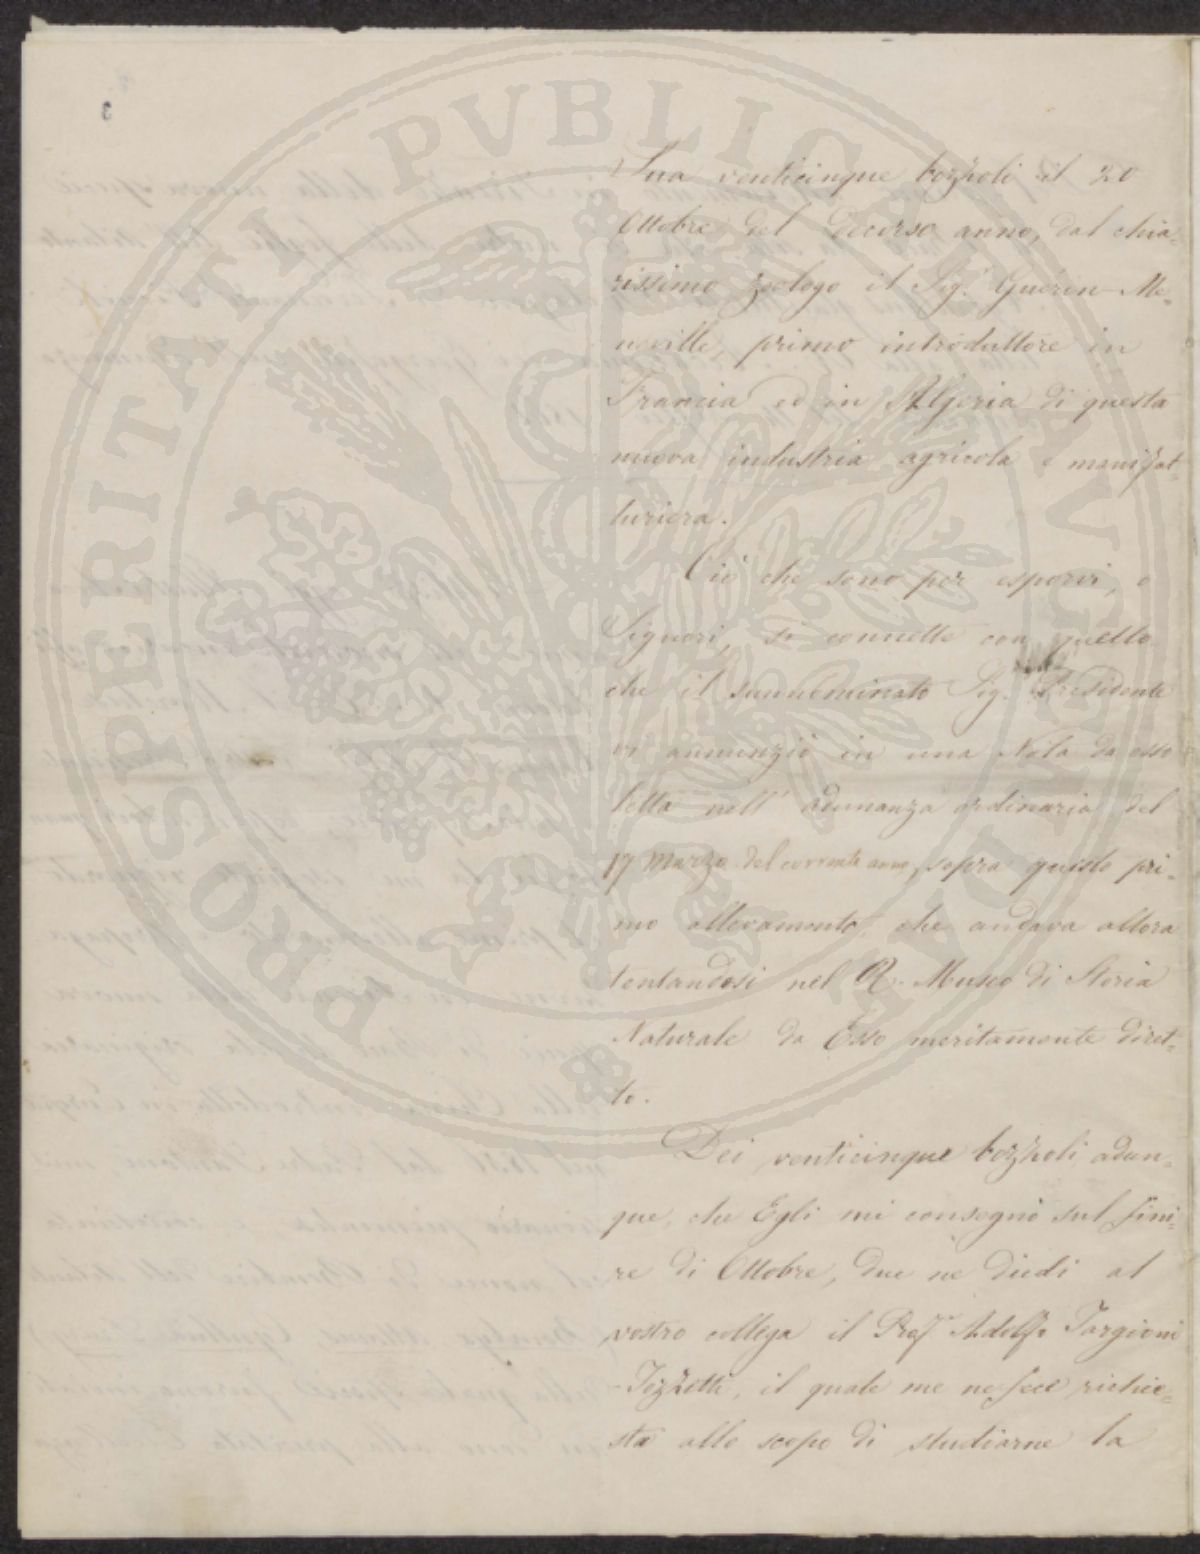 Sua venticinque bozzoli il 20
Ottobre del decorso anno, dal chia=
rissimo zoologo il Sig.r Guérin-Me=
neville, primo introduttore in
Francia ed in Algeria di questa
nuova industria agricola e manifat=
turiera.
Ciò che sono per esporvi, o
Signori, si connette con quello
che il sunnominato Sig. Presidente
vi annunziò in una Nota da esso
letta nell' adunanza ordinaria del
17 Marzo del corrente anno, sopra questo pri=
mo allevamento, che andava allora
tentandosi nel R. Museo di Storia
Naturale da Esso meritamente diret=
to.
Dei venticinque bozzoli adun=
que, che Egli mi consegnò sul fini=
re di Ottobre, due ne diedi al
vostro collega il Prof. Adolfo Targioni
-Tozzetti, il quale me ne fece richie=
sta allo scopo di studiarne la
PROSPERITATI PVBLICAE AVGENDAE
3